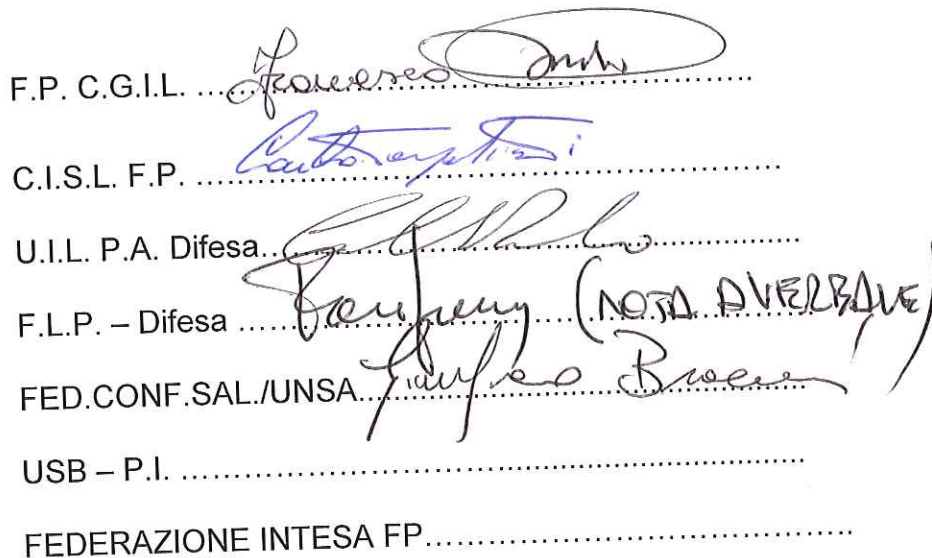 F.P. C.G.I.L. ........Francesco........................
C.I.S.L. F.P. ................................................
U.I.L. P.A. Difesa................................................
F.L.P. – Difesa ................(NOTA A VERBALE)
FED.CONF.SAL./UNSA................................................
USB – P.I. ................................................
FEDERAZIONE INTESA FP................................................